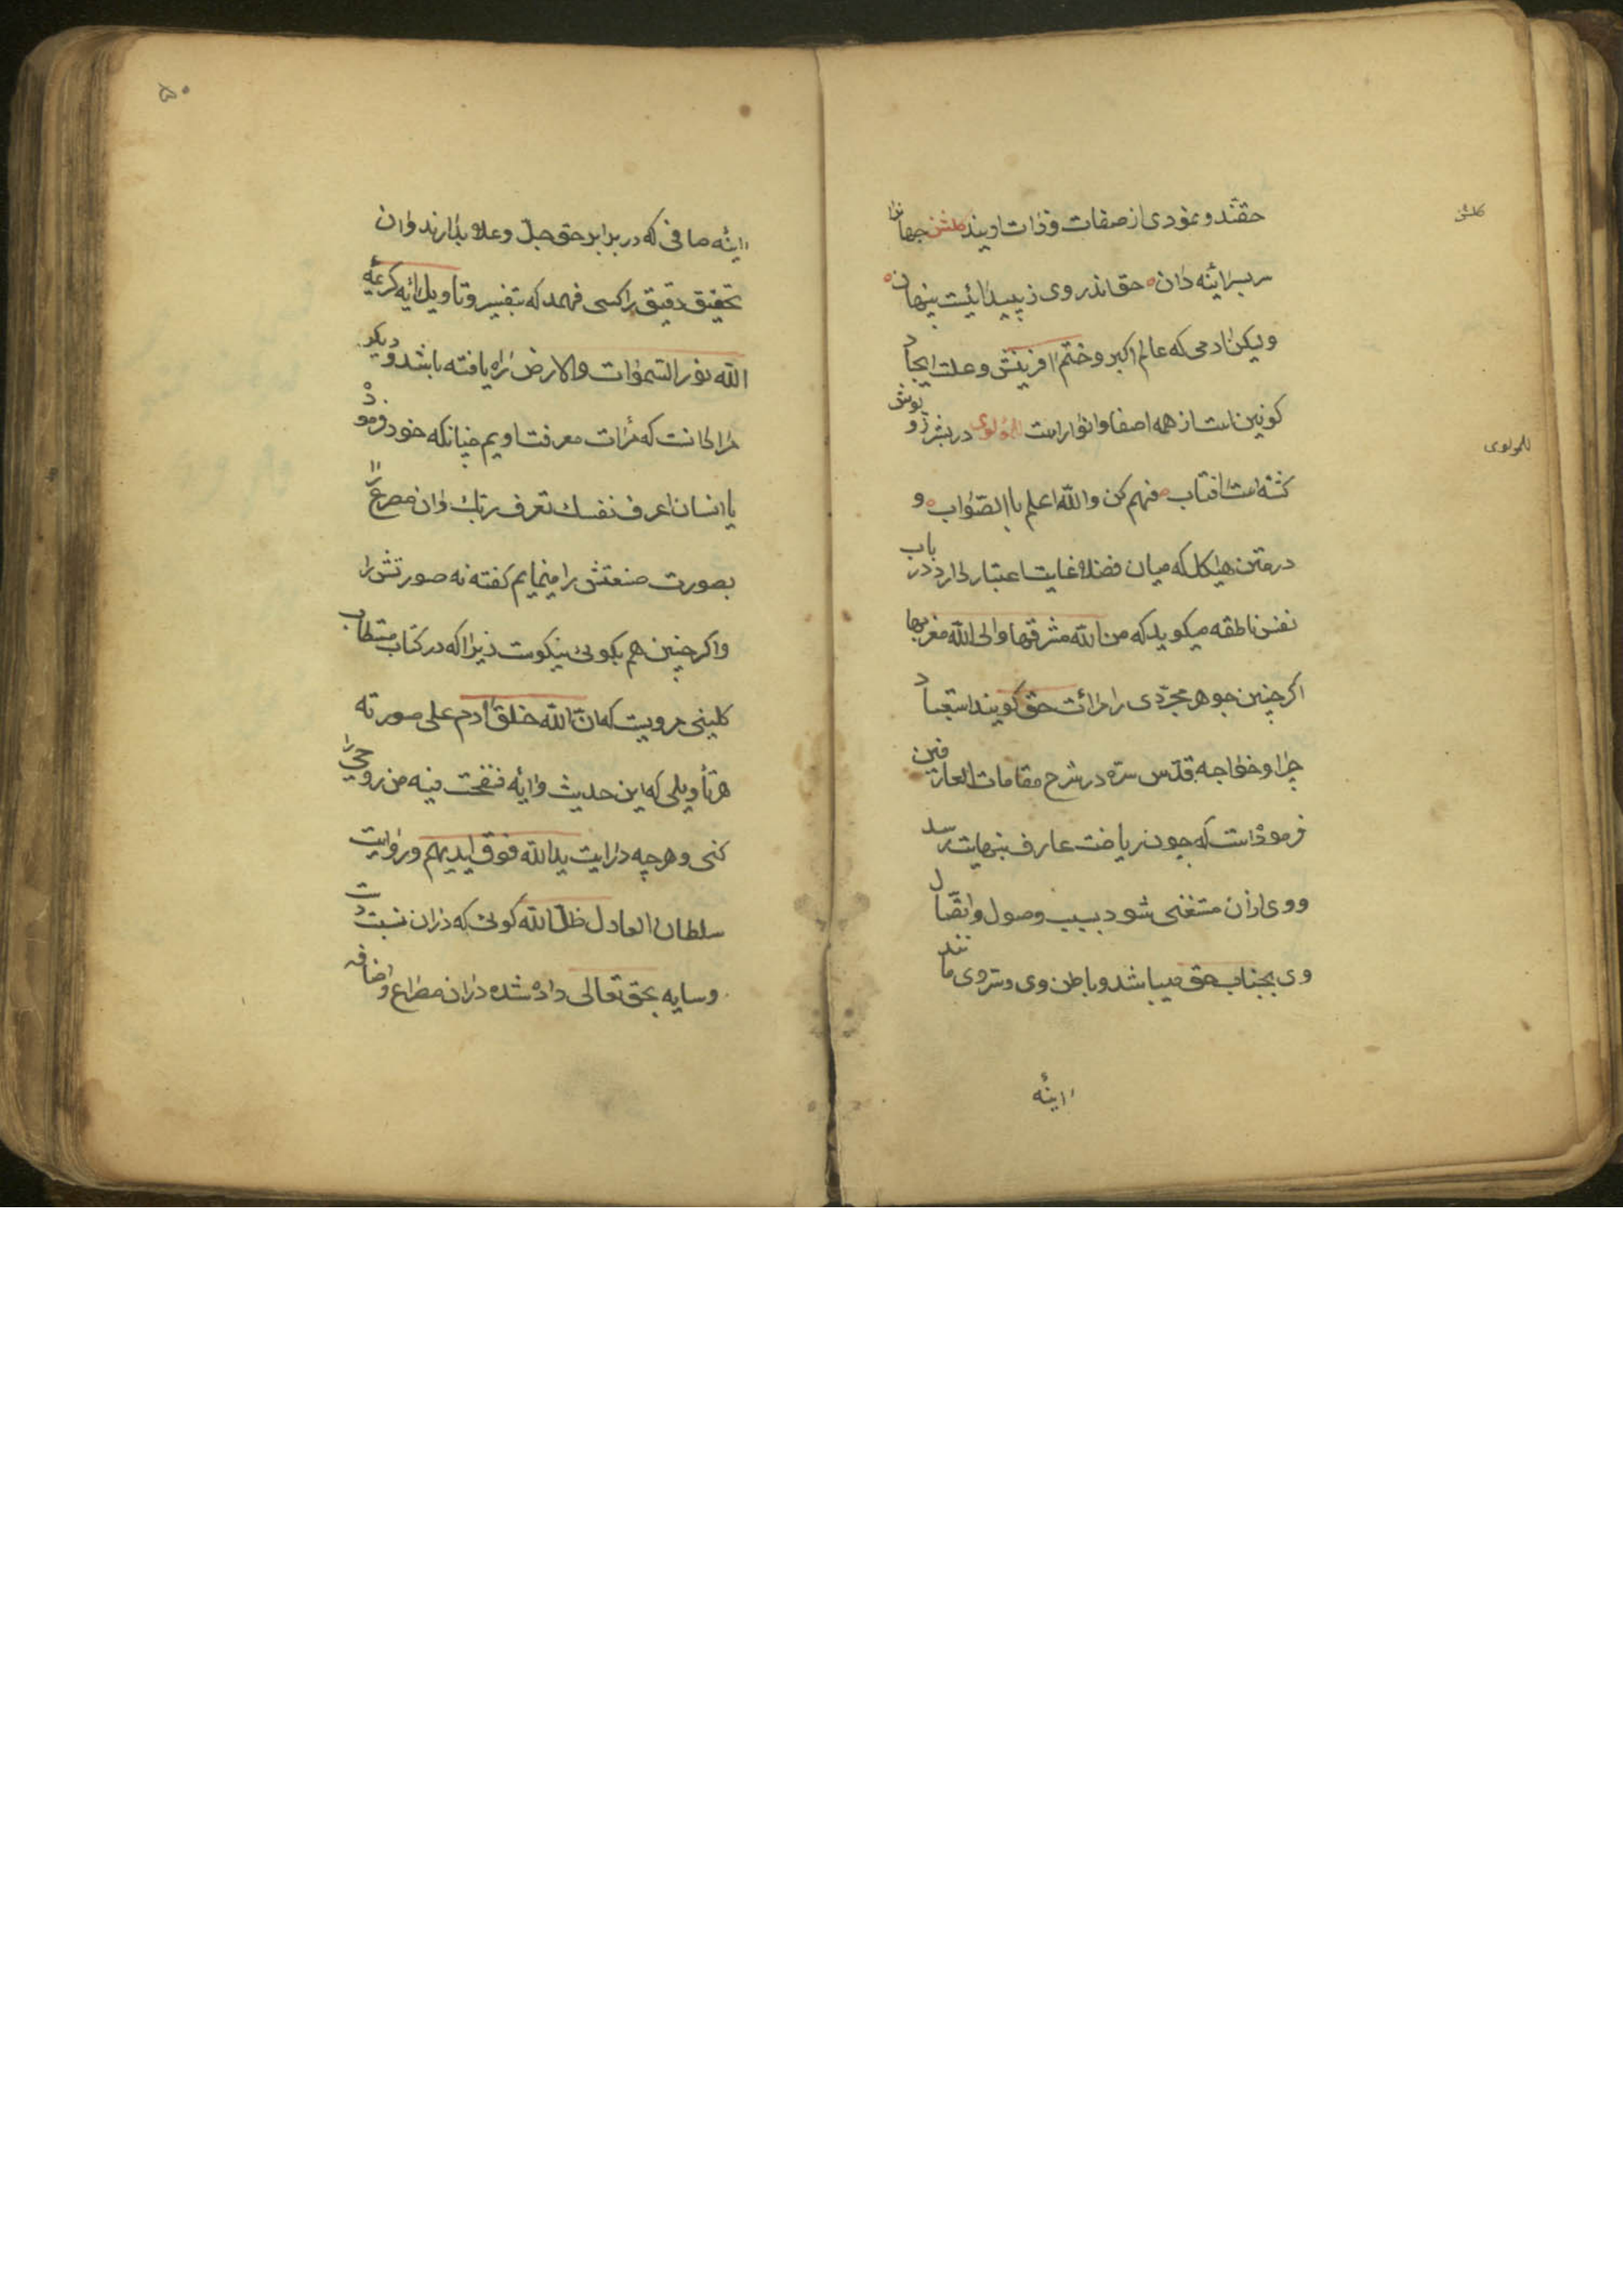 حقند و نمودی از صفات و ذات اویند گلشن جهانرا
کلشن
سربسر ائینه دان حق اندر وی ز پیدائیست پنهان
ولیکن ادمی که عالم اکبر و ختم افرینش و علت ایجاد
کونین است از همه اصفا و انور است للمولوی در بشر روپوش
للمولوی
کشته است افتاب فهم کن والله اعلم باالصّواب و
در متن هیاکل که میان فضلا غایت اعتبار دارد در باب
نفس ناطقه میکوید که من الله مشرقها والی الله مغربها
اکر چنین جوهر مجرّدی را مرات حق کویند استبعاد
چرا و خواجه قدّس سرّه در شرح مقامات العارفین
فرموده است که چون ریاضت عارف بنهایت رسد
و وی ازان مستغنی شود بسبب وصول و اتّصال
وی بجناب حق میباشد و باطن وی و سرّ وی مانند
اینهٔ
اینهٔ صافی که در برابر حق جلّ و علا بدارند و ان
تحقیق دقیق را کسی فهمد که بتفسیر و تاویل ایه کریمهٔ
الله نور السّموات والارض راه یافته باشد و دیکر
مراد انست که مرات معرفت اویم چنانکه خود فرموده
یا انسان اعرف نفسك تعرف ربّك و ان مصرع را
بصورت صنعتش را مینمایم کفته نه صورتش را
و اکر چنین هم بکوئی نیکوست زیرا که در کتاب مستطاب
کلینی مرویست که انّ الله خلق ادم علی صورته
هر تأویلی که این حدیث و ایه نفخت فیه من روحی را
کنی و هرچه در ایت ید الله فوق ایدیهم و روایت
سلطان العادل ظلّ الله کوئی که دران نسبت دست
و سایه بحق تعالی داده شده دران مصراع و اضافه
۵۰